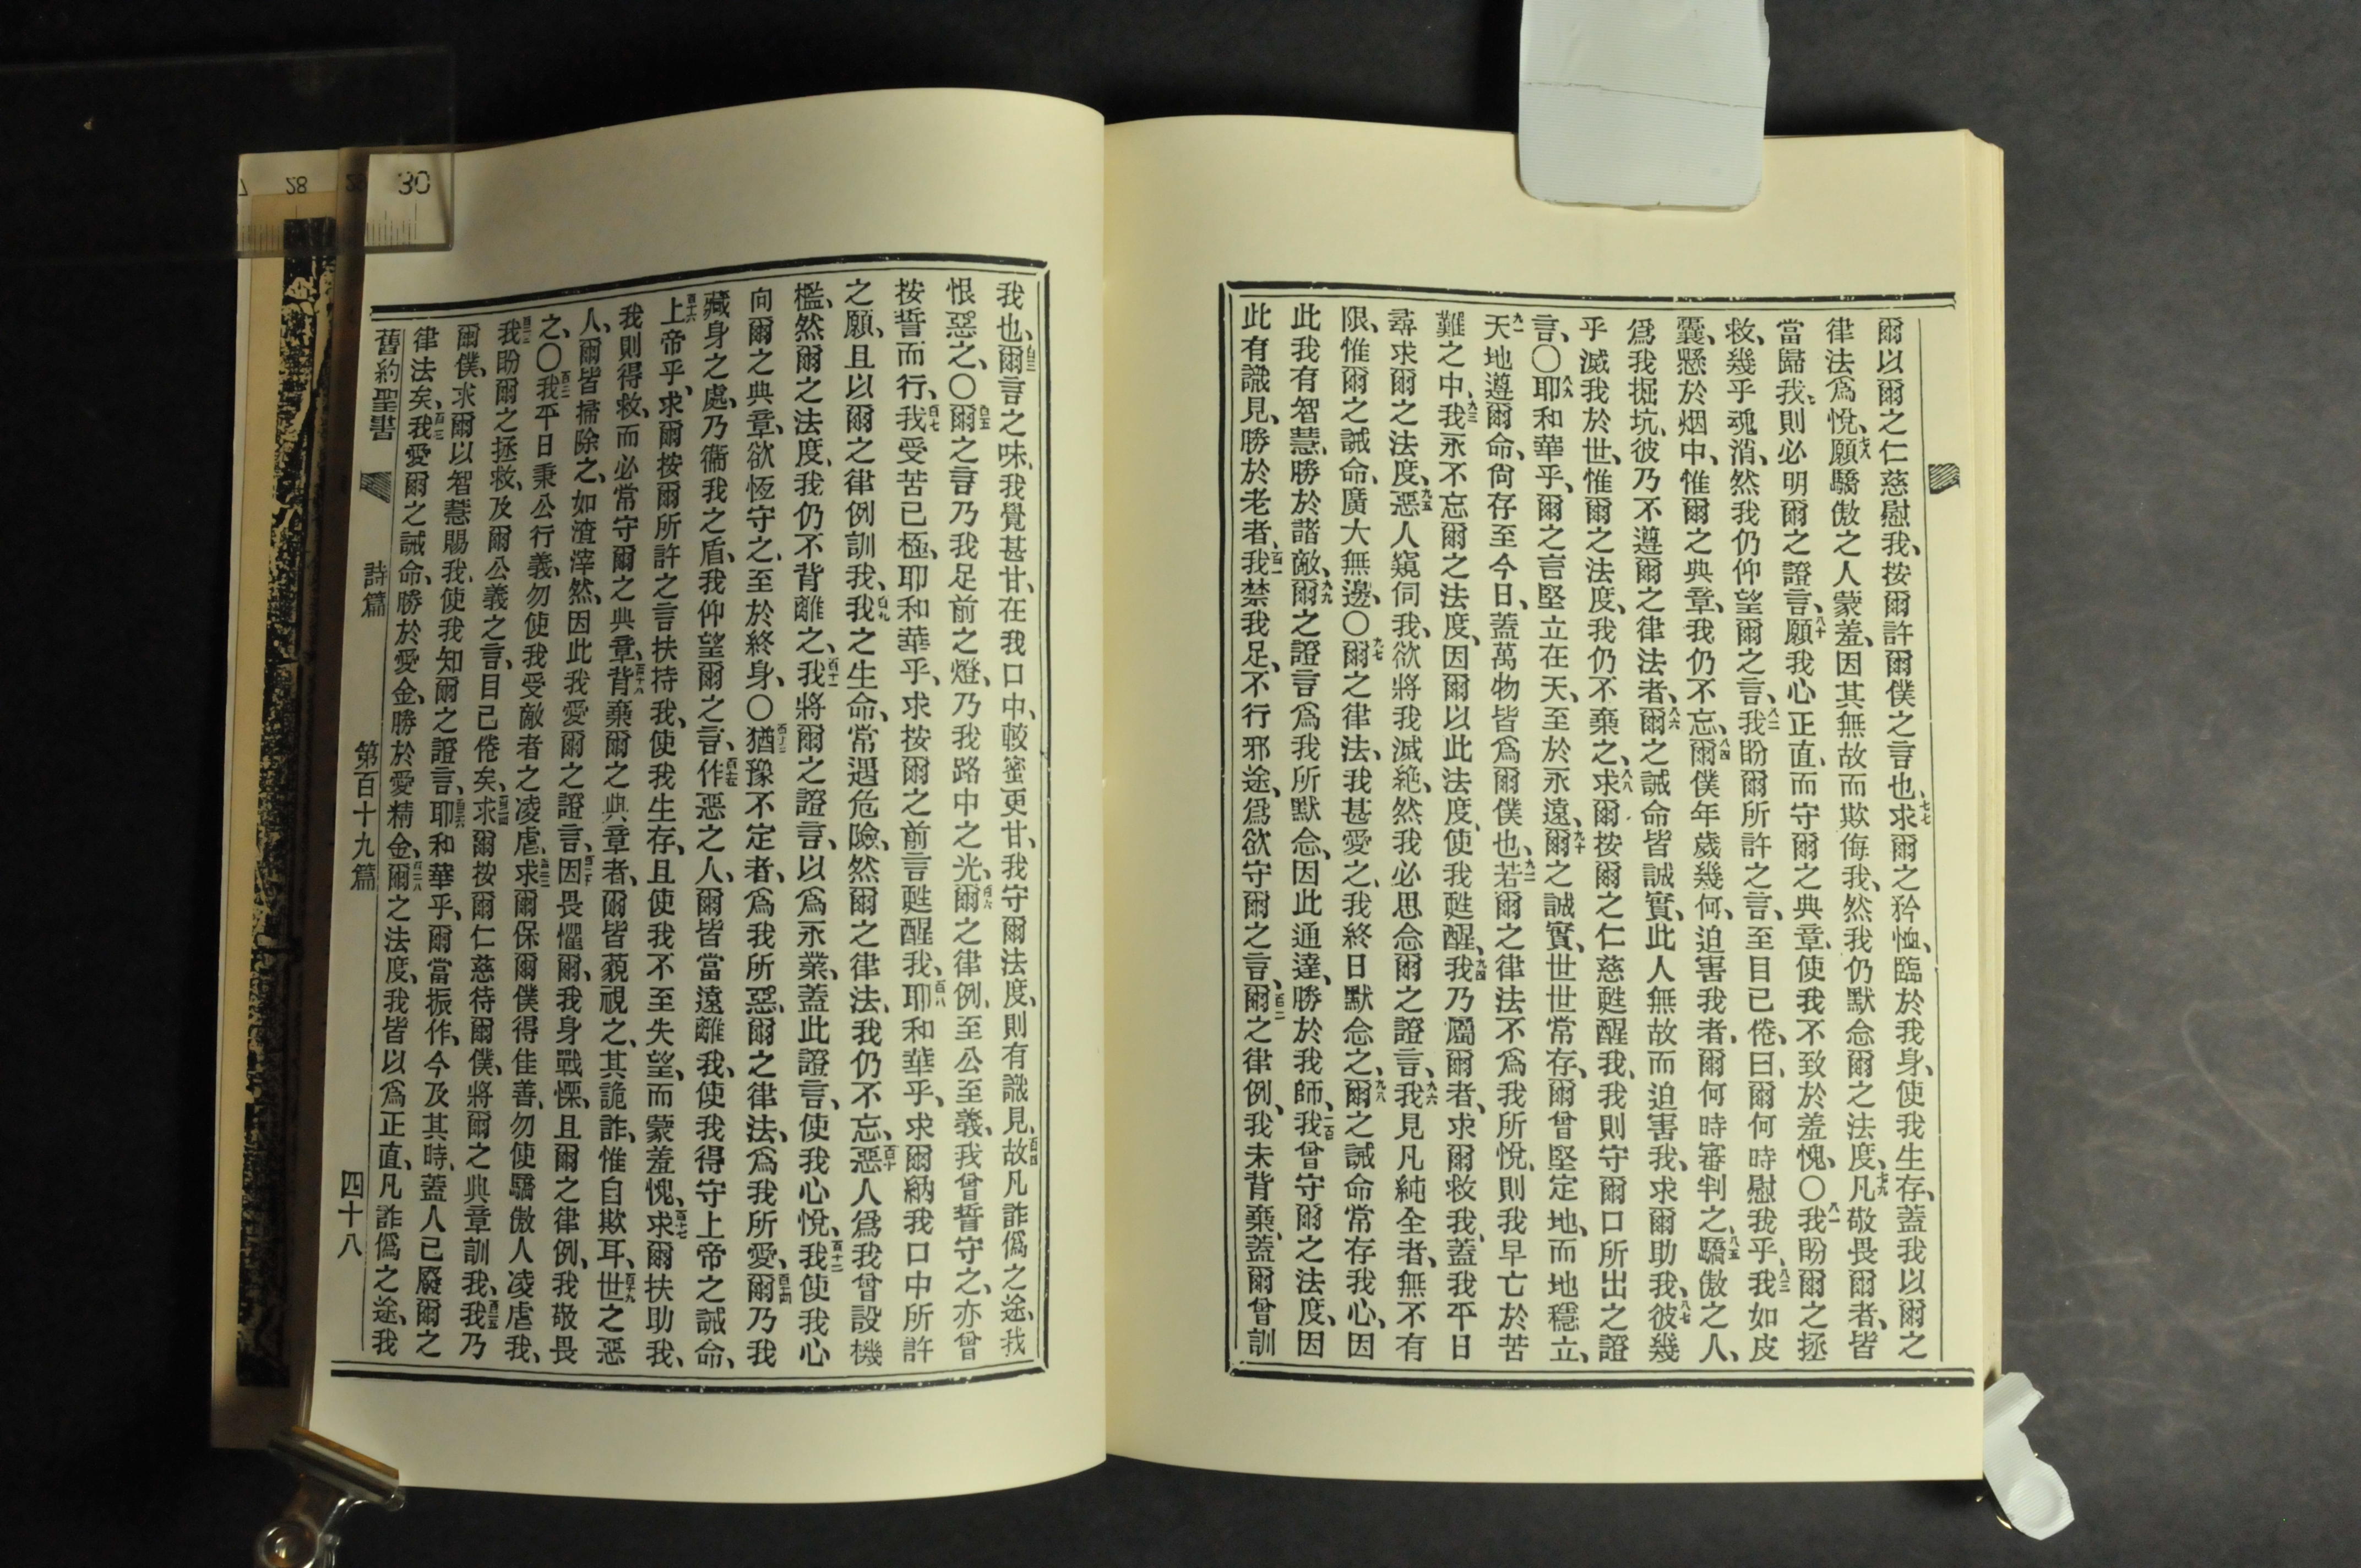 爾以爾之仁慈慰我、按爾許爾僕之言也、七七求爾之矜恤、臨於我身、使我生存、蓋我以爾之
律法爲悅、七八願驕傲之人蒙羞、因其無故而欺侮我、然我仍默念爾之法度、七九凡敬畏爾者、皆
當歸我、則必明爾之證言、八十願我心正直、而守爾之典章、使我不致於羞愧、〇八一我盼爾之拯
救、幾乎魂消、然我仍仰望爾之言、八二我盼爾所許之言、至目已倦、曰、爾何時慰我乎、八三我如皮
囊、懸於烟中、惟爾之典章、我仍不忘、八四爾僕年歲幾何、迫害我者、爾何時審判之、八五驕傲之人、
爲我掘坑、彼乃不遵爾之律法者、八六爾之誡命皆誠實、此人無故而迫害我、求爾助我、八七彼幾
乎滅我於世、惟爾之法度、我仍不棄之、八八求爾按爾之仁慈甦醒我、我則守爾口所出之證
言、〇八九耶和華乎、爾之言堅立在天、至於永遠、九十爾之誠實、世世常存、爾曾堅定地、而地穩立、
九一天地遵爾命、尙存至今日、蓋萬物皆爲爾僕也、九二若爾之律法不爲我所悅、則我早亡於苦
難之中、九三我永不忘爾之法度、因爾以此法度、使我甦醒、九四我乃屬爾者、求爾救我、蓋我平日
尋求爾之法度、九五惡人窺伺我、欲將我滅絶、然我必思念爾之證言、九六我見凡純全者、無不有
限、惟爾之誡命、廣大無邊、〇九七爾之律法、我甚愛之、我終日默念之、九八爾之誡命常存我心、因
此我有智慧、勝於諸敵、九九爾之證言爲我所默念、因此通達、勝於我師、一百我曾守爾之法度、因
此有識見、勝於老者、百一我禁我足、不行邪途、爲欲守爾之言、百二爾之律例、我未背棄、蓋爾曾訓
我也、百三爾言之味、我覺甚甘、在我口中、較蜜更甘、我守爾法度、則有識見、百四故凡詐僞之途、我
恨惡之、〇百五爾之言乃我足前之燈、乃我路中之光、百六爾之律例、至公至義、我曾誓守之、亦曾
按誓而行、百七我受苦已極、耶和華乎、求按爾之前言甦醒我、百八耶和華乎、求爾納我口中所許
之願、且以爾之律例訓我、百九我之生命、常遇危險、然爾之律法、我仍不忘、百十惡人爲我曾設機
檻、然爾之法度、我仍不背離之、百十一我將爾之證言、以爲永業、蓋此證言、使我心悅、百十二我使我心
向爾之典章、欲恆守之、至於終身、〇百十三猶豫不定者、爲我所惡、爾之律法、爲我所愛、百十四爾乃我
藏身之處、乃衞我之盾、我仰望爾之言、百十五作惡之人、爾皆當遠離我、使我得守上帝之誡命、
百十六上帝乎、求爾按爾所許之言扶持我、使我生存、且使我不至失望、而蒙羞愧、百十七求爾扶助我、
我則得救、而必常守爾之典章、百十八背棄爾之典章者、爾皆藐視之、其詭詐、惟自欺耳、百十九世之惡
人、爾皆掃除之、如渣滓然、因此我愛爾之證言、百二十因畏懼爾、我身戰慄、且爾之律例、我敬畏
之、〇百二一我平日秉公行義、勿使我受敵者之凌虐、百二二求爾保爾僕得佳善、勿使驕傲人凌虐我、
百二三我盼爾之拯救、及爾公義之言、目已倦矣、百二四求爾按爾仁慈待爾僕、將爾之典章訓我、百二五我乃
爾僕、求爾以智慧賜我、使我知爾之證言、百二六耶和華乎、爾當振作、今及其時、蓋人已廢爾之
律法矣、百二七我愛爾之誡命、勝於愛金、勝於愛精金、百二八爾之法度、我皆以爲正直、凡詐僞之途、我
舊約聖書 詩篇 第百十九篇 四十八
28
29
30